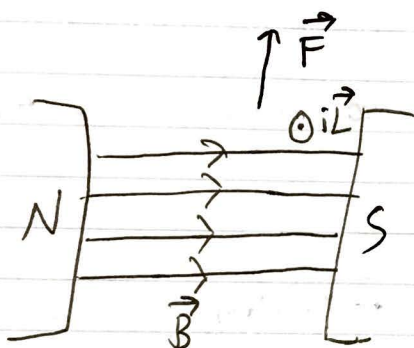 F⃗
⊙ iL⃗
N
S
B⃗